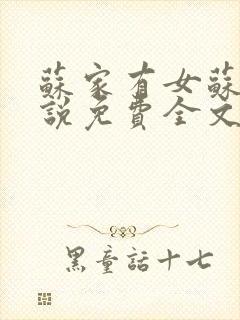 蘇家有女蘇
說免費全文
黑童話十七